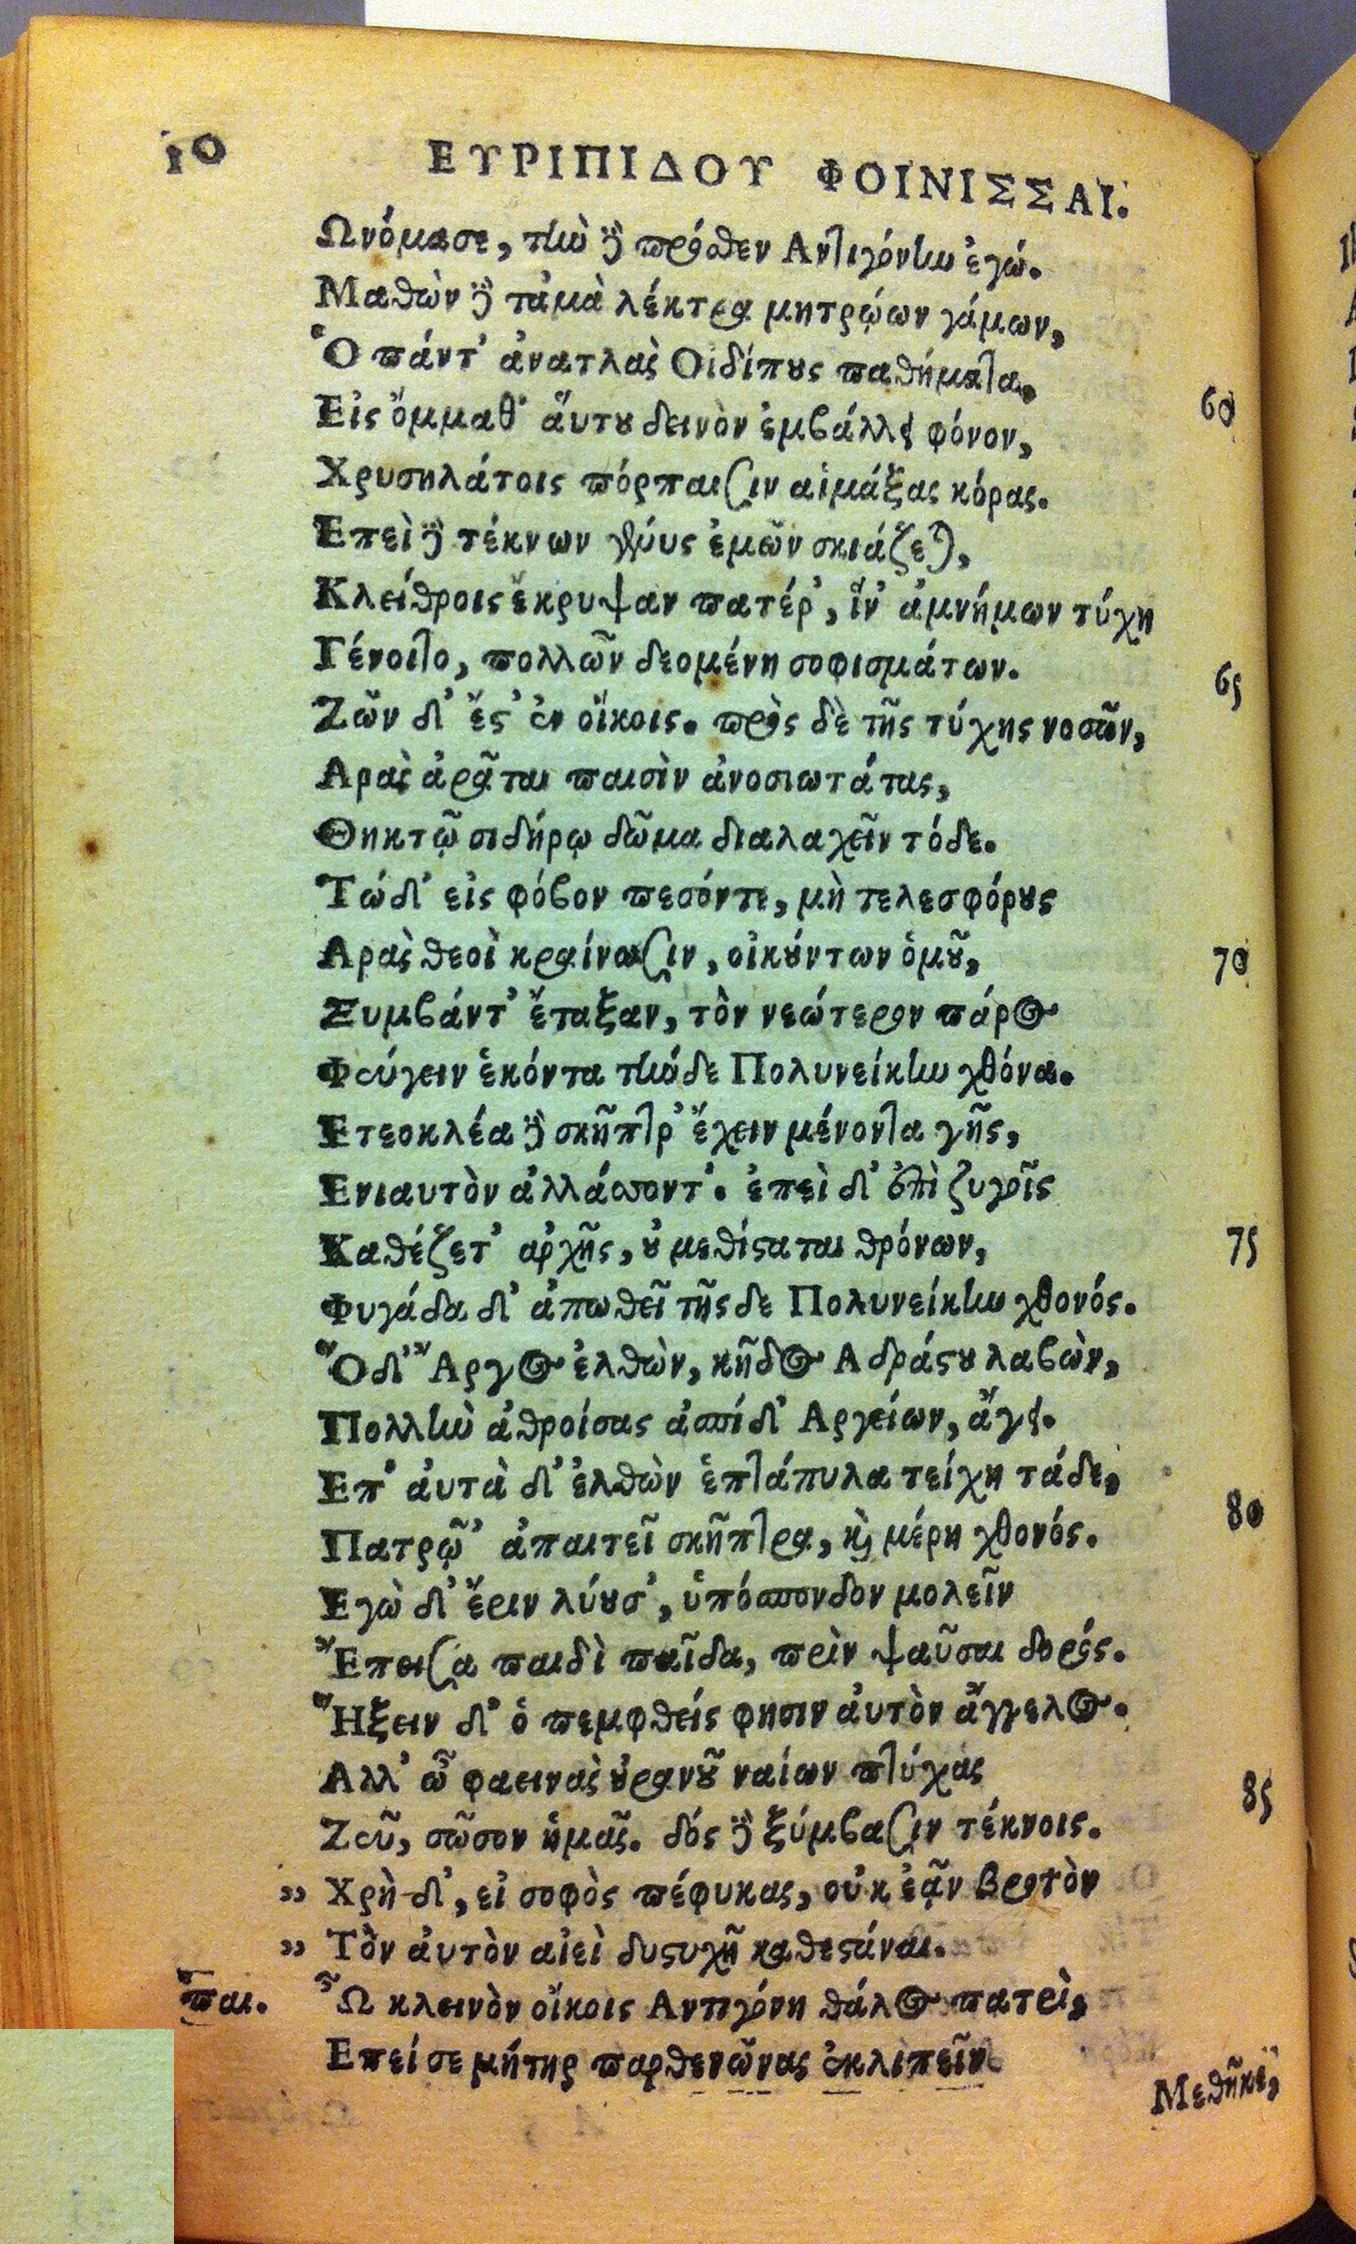 10 ΕΥΡΙΠΙΔΟΥ ΦΟΙΝΙΣΣΑΙ.
Ωνόμασε, τὴν δὲ πρόσθεν Αντιγόνην ἐγώ.
Μαθὼν δὲ τἀμὰ λέκτρα μητρῴων γάμων,
Ὁ πάντ' ἀνατλὰς Οἰδίπους παθήματα.
Εἰς ὄμμαθ' ἅυτου δεινὸν ἐμβάλλει φόνον, 60
Χρυσηλάτοις πόρπαισιν αἱμάξας κόρας.
Επεὶ δὲ τέκνων γένυς ἐμῶν σκιάζεται,
Κλείθροις ἔκρυψαν πατέρ', ἵν' ἀμνήμων τύχη
Γένοιτο, πολλῶν δεομένη σοφισμάτων.
Ζῶν δ' ἔστ' ἐν οἴκοις. πρὸς δὲ τῆς τύχης νοσῶν, 65
Αρὰς ἀρᾶται παισὶν ἀνοσιωτάτας,
Θηκτῷ σιδήρῳ δῶμα διαλαχεῖν τόδε.
Τώ δ' εἰς φόβον πεσόντε, μὴ τελεσφόρους
Αρὰς θεοὶ κραίνωσιν, οἰκούντων ὁμοῦ, 70
Ξυμβάντ' ἔταξαν, τὸν νεώτερον πάρος
Φεύγειν ἑκόντα τήνδε Πολυνείκην χθόνα.
Ετεοκλέα δὲ σκῆπτρ' ἔχειν μένοντα γῆς,
Ενιαυτὸν ἀλλάσσοντ'. ἐπεὶ δ' ἐπὶ ζυγοῖς
Καθέζετ' ἀρχῆς, οὐ μεθίσταται θρόνων, 75
Φυγάδα δ' ἀπωθεῖ τῆς δε Πολυνείκην χθονός.
Ὅ δ' Ἄργος ἐλθὼν, κῆδος Αδράστου λαβὼν,
Πολλὴν ἀθροίσας ἀσπίδ' Αργείων, ἄγει.
Επ' ἀυτὰ δ' ἐλθὼν ἑπτάπυλα τείχη τάδε,
Πατρῷ' ἀπαιτεῖ σκῆπτρα, καὶ μέρη χθονός. 80
Εγὼ δ' ἔριν λύουσ', ὑπόσπονδον μολεῖν
Ἔπεισα παιδὶ παῖδα, πρὶν ψαῦσαι δορός.
Ἥξειν δ' ὁ πεμφθείς φησιν ἀυτὸν ἄγγελος.
Αλλ' ὦ φαεινὰς οὐρανοῦ ναίων πτύχας
Ζεῦ, σῶσον ἡμᾶς. δός δὲ ξύμβασιν τέκνοις. 85
" Χρὴ δ', εἰ σοφὸς πέφυκας, οὐκ ἐᾷν βροτὸν
" Τὸν ἀυτὸν αἰεὶ δυστυχῆ καθεστάναι.
παι. Ὦ κλεινὸν οἴκοις Αντιγόνη θάλος πατρὶ,
Επεί σε μήτηρ παρθενῶνας ἐκλιπεῖν
Μεθῆκε,